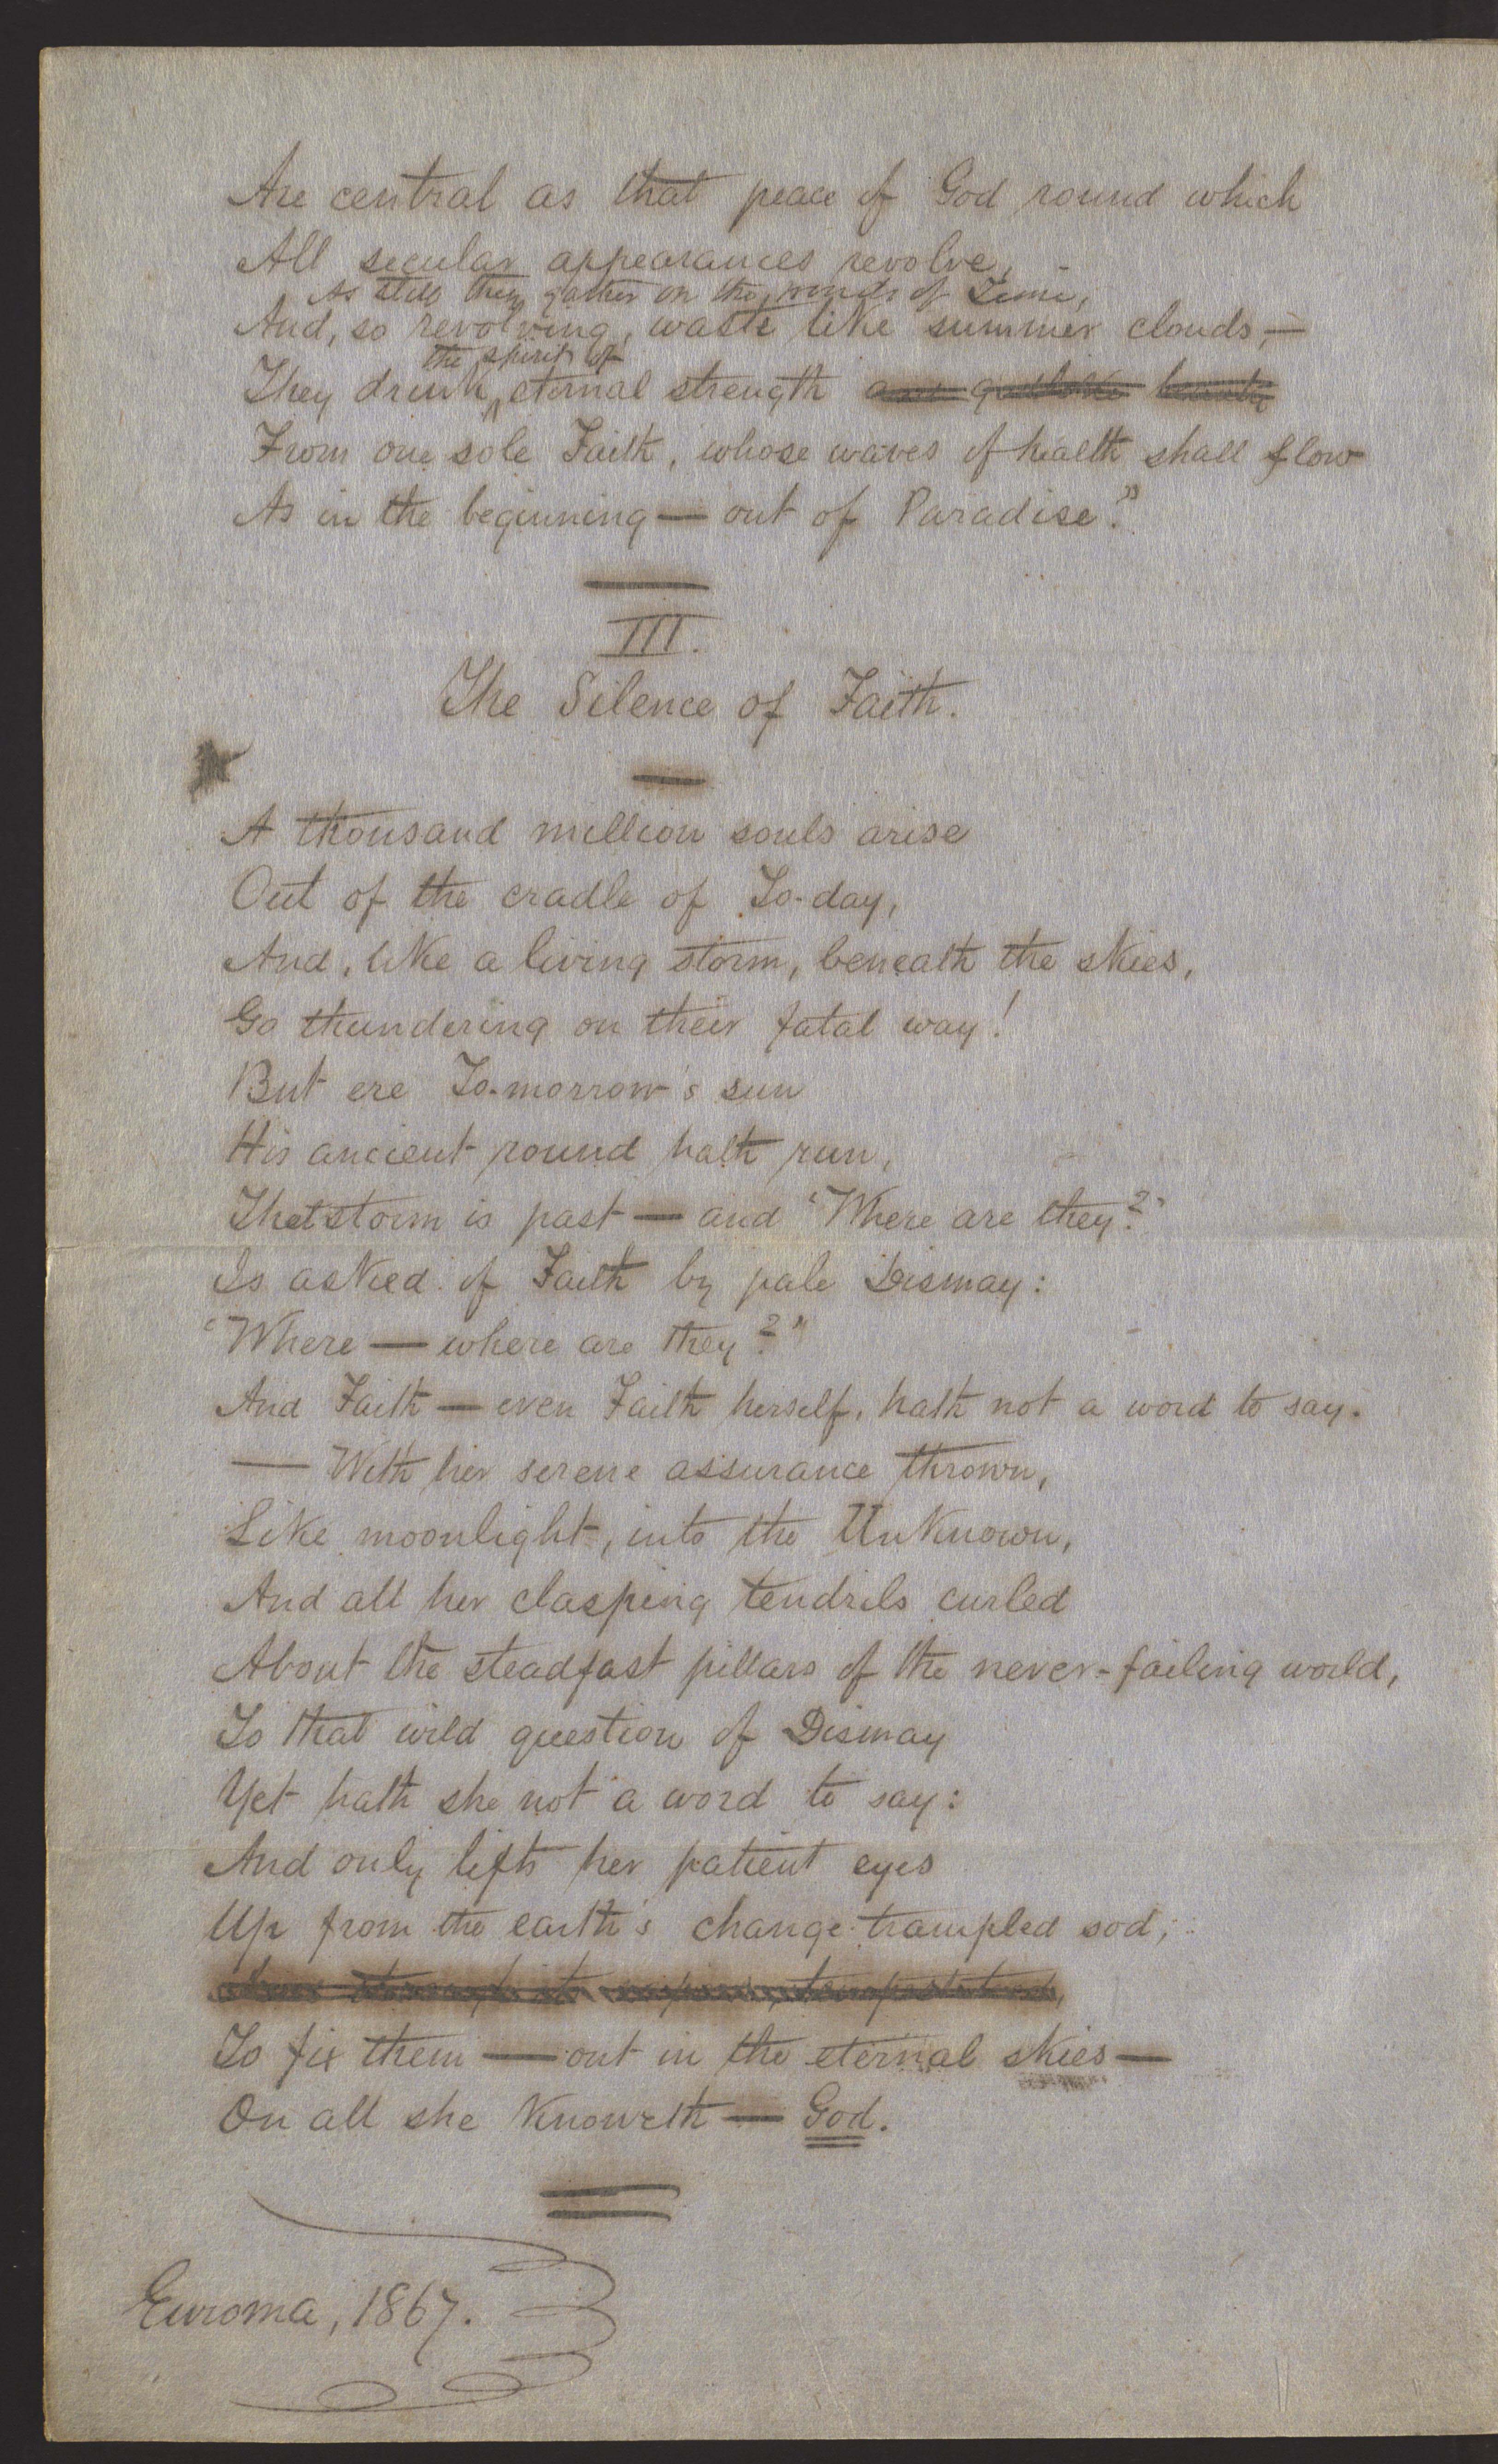 Are central as that peace of God round which
All secular appearances revolve,
As still they gather on the winds of Time,
And, so revolving, waste like summer clouds,—
the spirit of
They drink eternal strength
From one sole Faith, whose waves of health shall flow
As in the beginning — out of Paradise."
III.
The Silence of Faith.
A thousand million souls arise
Out of the cradle of To-day,
And, like a living storm, beneath the skies,
Go thundering on their fatal way!
But ere To-morrow's sun
His ancient round hath run,
That storm is past — and "Where are they?"
Is asked of Faith by pale Dismay:
"Where — where are they?"
And Faith — even Faith herself, hath not a word to say.
— With her serene assurance thrown,
Like moonlight, into the Unknown,
And all her clasping tendrils curled
About the steadfast pillars of the never-failing world,
To that wild question of Dismay
Yet hath she not a word to say:
And only lifts her patient eyes
Up from the earth's change-trampled sod;
To fix them — out in the eternal skies —
On all she Knoweth — God.
Euroma, 1867.